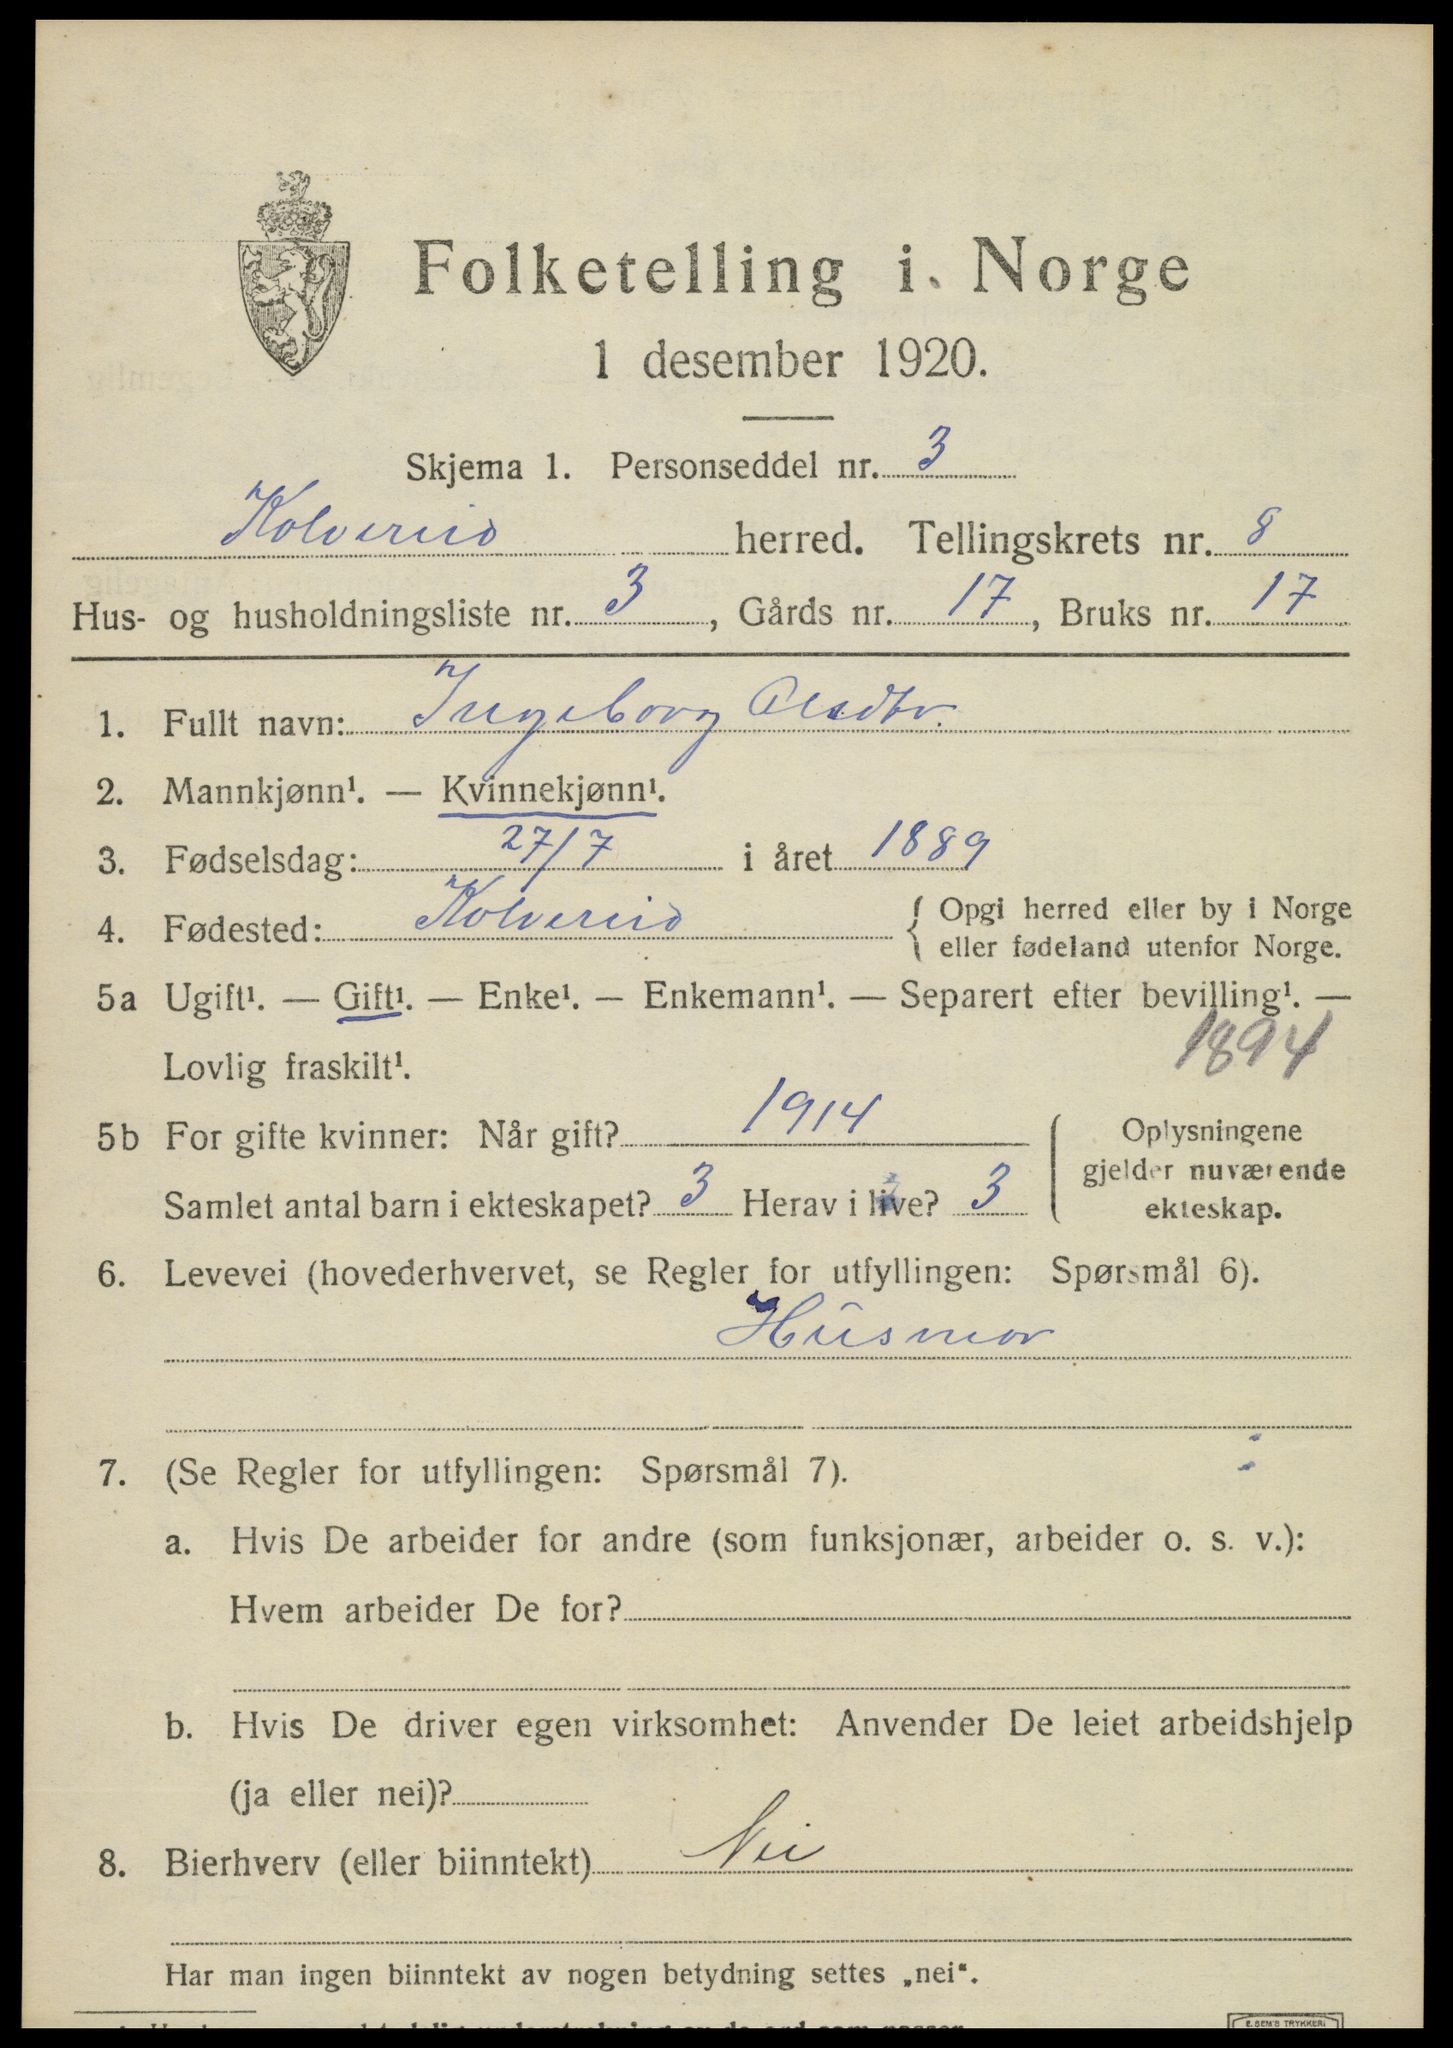 Folketelling i Norge
1 desember 1920.
Skjema 1. Personseddel nr. 3
Kolvereid herred. Tellingskrets nr. 8
Hus- og husholdningsliste nr. 3, Gårds nr. 17, Bruks nr. 17
1. Fullt navn: Ingeborg Olsdtr.
2. Mannkjønn¹. — Kvinnekjønn¹.
3. Fødselsdag: 27/7 i året 1889
4. Fødested: Kolvereid { Opgi herred eller by i Norge
eller fødeland utenfor Norge.
5a Ugift¹. — Gift¹. — Enke¹. — Enkemann¹. — Separert efter bevilling¹. —
Lovlig fraskilt¹. 1894
5b For gifte kvinner: Når gift? 1914
Samlet antal barn i ekteskapet? 3 Herav i live? 3
Oplysningene
gjelder nuværende
ekteskap.
6. Levevei (hovederhvervet, se Regler for utfyllingen: Spørsmål 6).
Húsmor
7. (Se Regler for utfyllingen: Spørsmål 7).
a. Hvis De arbeider for andre (som funksjonær, arbeider o. s. v.):
Hvem arbeider De for?
b. Hvis De driver egen virksomhet: Anvender De leiet arbeidshjelp
(ja eller nei)?
8. Bierhverv (eller biinntekt) Nei
Har man ingen biinntekt av nogen betydning settes „nei“.
E. SEM'S TRYKKERI